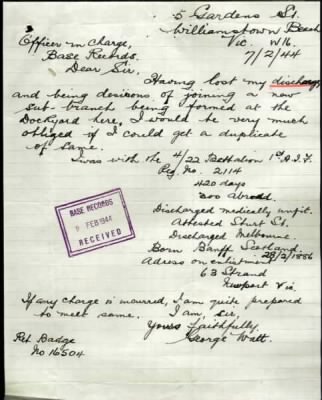 5 Gardens St.
Williamstown Beach
Vic. W16.
7/2/44
Officer in Charge,
Base Records.
Dear Sir,
Having lost my discharge
and being desirous of joining a new
sub-branch being formed at the
Dockyard here, I would be very much
obliged if I could get a duplicate
of same.
I was with the 4/22 Battalion 1st A.I.F.
Reg. No. 2114
420 days
300 Abroad.
Discharged medically unfit.
Attested Sturt St.
Discharged Melbourne.
Born Banff Scotland. 28/2/1886
Adress on enlistment
63 Strand
Newport Vic.
If any charge is incurred, I am quite prepared
to meet same. I am, Sir,
Yours Faithfully.
George Watt.
Ret Badge
No 16504
BASE RECORDS
9 FEB 1944
RECEIVED